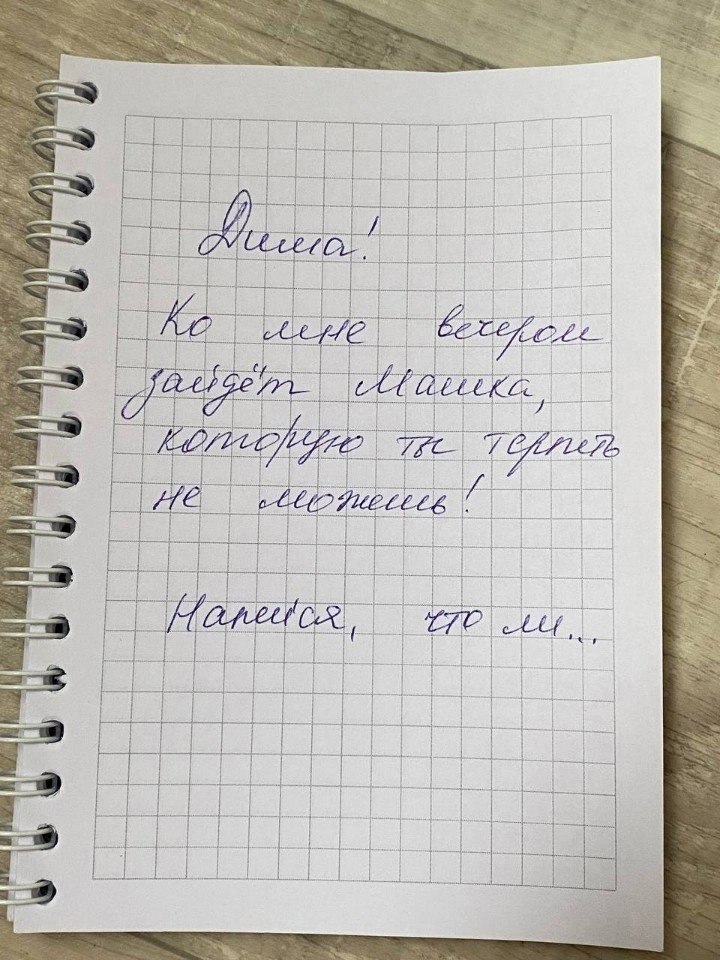 Дима!
Ко мне вечером
зайдёт Машка,
которую ты терпеть
не можешь!
Напейся, что ли...